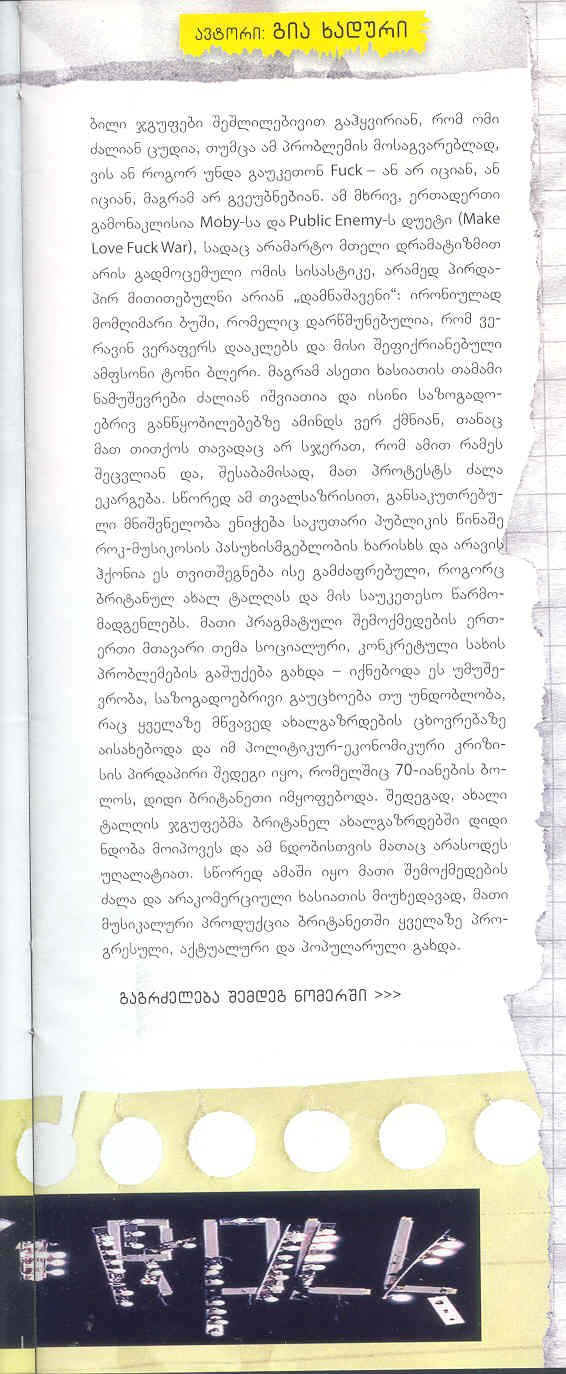 ავტორი: გია ხადური
ბილი ჯგუფები შეშლილებივით გაჰყვირიან, რომ ომი
ძალიან ცუდია, თუმცა ამ პრობლემის მოსაგვარებლად,
ვის ან როგორ უნდა გაუკეთონ Fuck – ან არ იციან, ან
იციან, მაგრამ არ გვეუბნებიან. ამ მხრივ, ერთადერთი
გამონაკლისია Moby-სა და Public Enemy-ს დუეტი (Make
Love Fuck War), სადაც არამარტო მთელი დრამატიზმით
არის გადმოცემული ომის სისასტიკე, არამედ პირდა-
პირ მითითებულნი არიან „დამნაშავენი“: ირონიულად
მომღიმარი ბუში, რომელიც დარწმუნებულია, რომ ვე-
რავინ ვერაფერს დააკლებს და მისი შეფიქრიანებული
ამფსონი ტონი ბლერი. მაგრამ ასეთი ხასიათის თამამი
ნამუშევრები ძალიან იშვიათია და ისინი საზოგადო-
ებრივ განწყობილებებზე ამინდს ვერ ქმნიან, თანაც
მათ თითქოს თავადაც არ სჯერათ, რომ ამით რამეს
შეცვლიან და, შესაბამისად, მათ პროტესტს ძალა
ეკარგება. სწორედ ამ თვალსაზრისით, განსაკუთრებუ-
ლი მნიშვნელობა ენიჭება საკუთარი პუბლიკის წინაშე
როკ-მუსიკოსის პასუხისმგებლობის ხარისხს და არავის
ჰქონია ეს თვითშეგნება ისე გამძაფრებული, როგორც
ბრიტანულ ახალ ტალღას და მის საუკეთესო წარმო-
მადგენლებს. მათი პრაგმატული შემოქმედების ერთ-
ერთი მთავარი თემა სოციალური, კონკრეტული სახის
პრობლემების გაშუქება გახდა – იქნებოდა ეს უმუშე-
ვრობა, საზოგადოებრივი გაუცხოება თუ უნდობლობა,
რაც ყველაზე მწვავედ ახალგაზრდების ცხოვრებაზე
აისახებოდა და იმ პოლიტიკურ-ეკონომიკური კრიზი-
სის პირდაპირი შედეგი იყო, რომელშიც 70-იანების ბო-
ლოს, დიდი ბრიტანეთი იმყოფებოდა. შედეგად, ახალი
ტალღის ჯგუფებმა ბრიტანელ ახალგაზრდებში დიდი
ნდობა მოიპოვეს და ამ ნდობისთვის მათაც არასოდეს
უღალატიათ. სწორედ ამაში იყო მათი შემოქმედების
ძალა და არაკომერციული ხასიათის მიუხედავად, მათი
მუსიკალური პროდუქცია ბრიტანეთში ყველაზე პრო-
გრესული, აქტუალური და პოპულარული გახდა.
გაგრძელება შემდეგ ნომერში >>>
ROCK